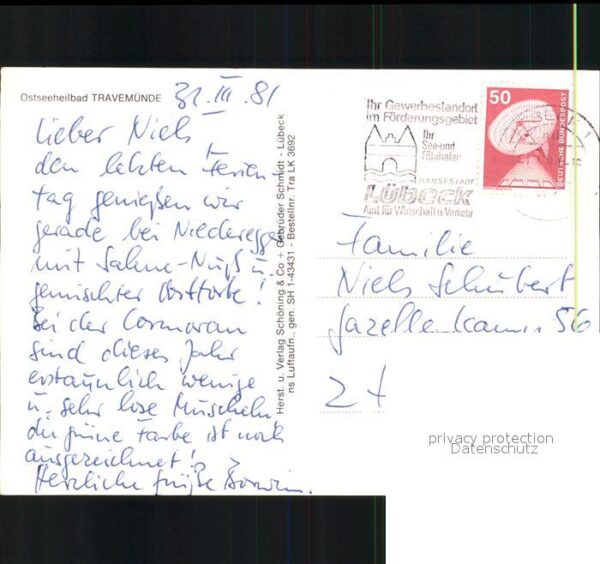 Ostseeheilbad TRAVEMÜNDE
31. III. 81
Lieber Niels
den letzten Ferien
tag genießen wir
gerade bei Niederegger
mit Sahne-Nuß u.
gemischter Obsttorte!
Bei der Cormoran
sind dieses Jahr
erstaunlich wenige
u. sehr lose Muscheln,
die grüne Farbe ist noch
ausgezeichnet!
Herzliche Grüße
Herst. u. Verlag Schöning & Co + Gebrüder Schmidt - Lübeck
ns Luftaufn. gen. SH 1-43431 - Bestellnr. Tra LK 3692
Ihr Gewerbestandort
im Förderungsgebiet
Ihr
See-und
Fährhafen
HANSESTADT
Lübeck
Amt für Wirtschaft u. Verkehr
50
DEUTSCHE BUNDESPOST
Familie
Niels Schubert
Gazellenkamp 56
2
privacy protection
Datenschutz